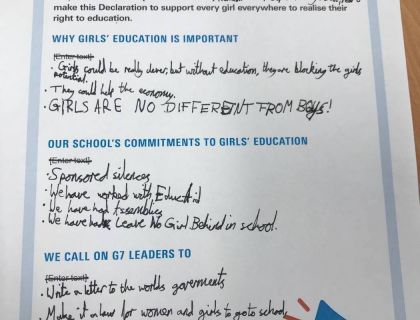 make this Declaration to support every girl everywhere to realise their
right to education.
WHY GIRLS' EDUCATION IS IMPORTANT
[Enter text]
• Girls could be really clever, but without education, they are blocking the girls
potential.
• They could help the economy.
• GIRLS ARE NO DIFFERENT FROM BOYS!
OUR SCHOOL'S COMMITMENTS TO GIRLS' EDUCATION
[Enter text]
• Sponsored silences
• We have worked with EducAid
• We have had Assemblies
• We have had Leave No Girl Behind in school.
WE CALL ON G7 LEADERS TO
[Enter text]
• Write a letter to the worlds goverments
• Make it a law for women and girls to go to school